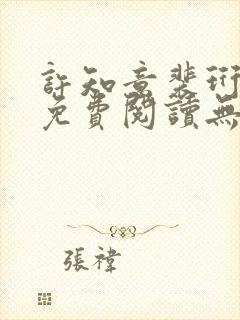 許知意裴珩
免費閱讀無
張褘